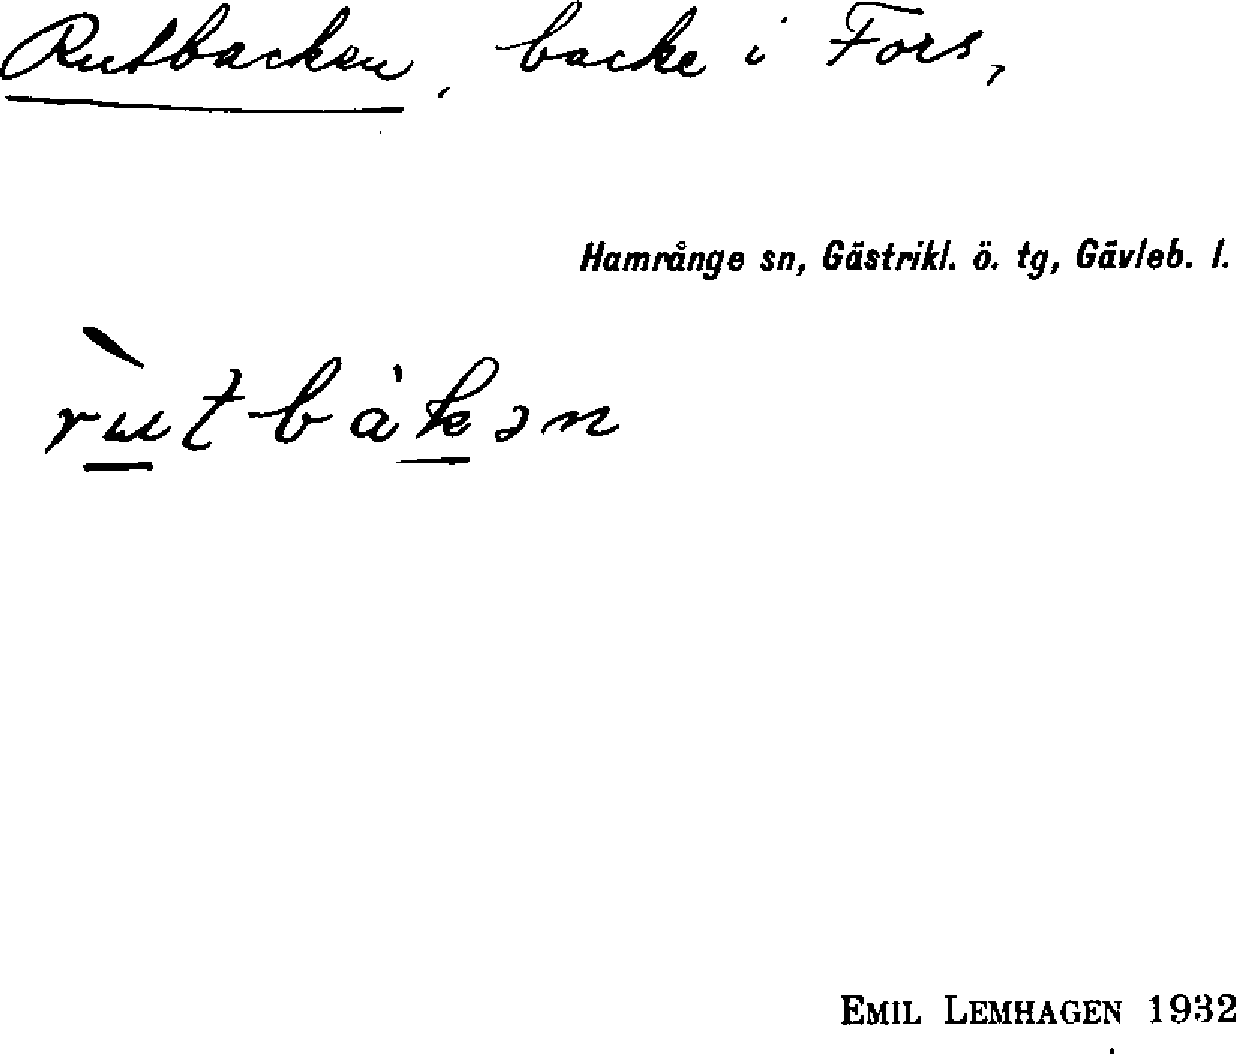 Rutbacken, backe i Fors,
Hamrånge sn, Gästrikl. ö. tg, Gävleb. l.
rùtbàkən
EMIL LEMHAGEN 1932